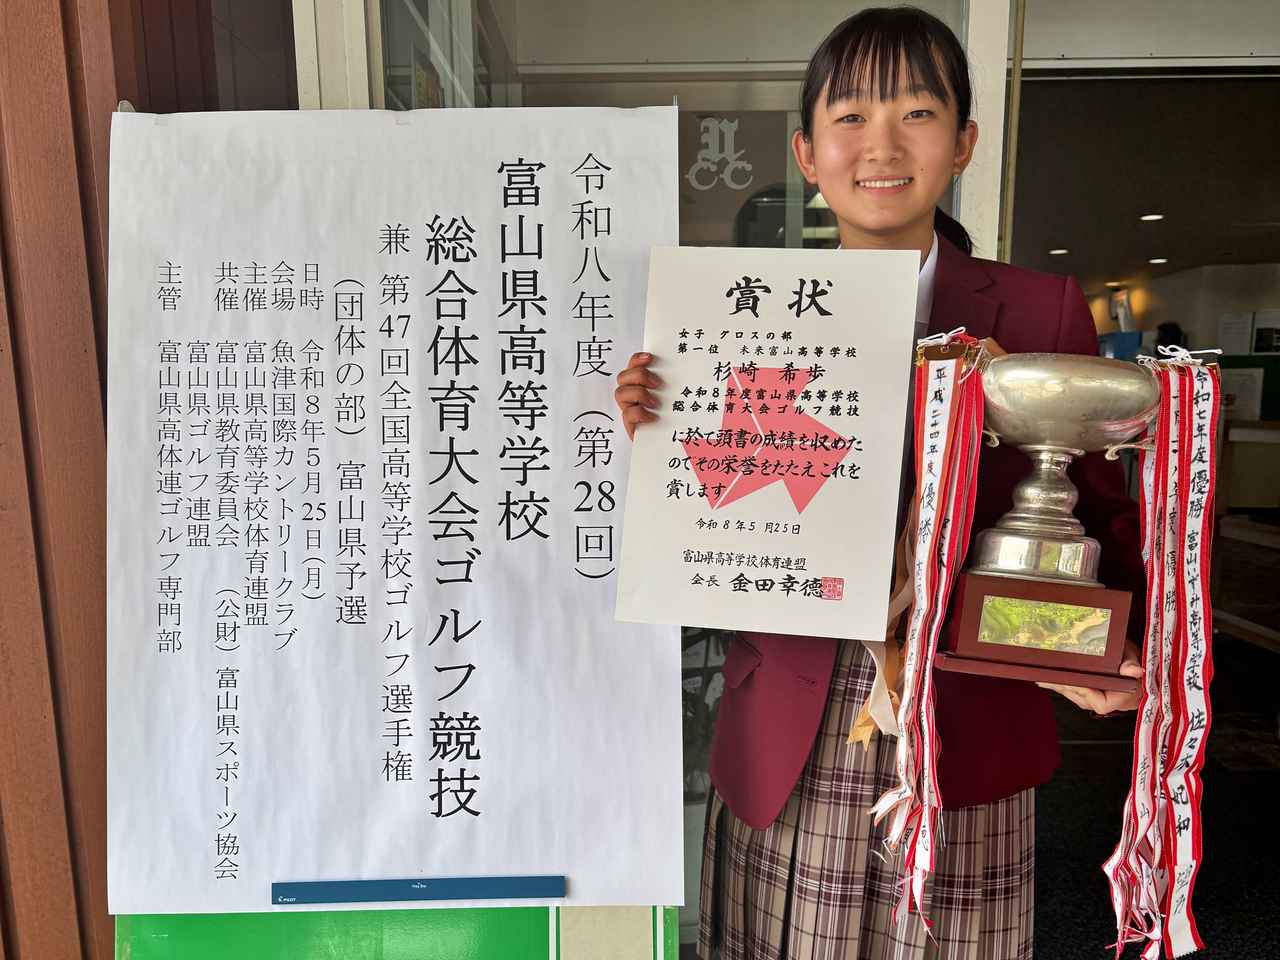 令和八年度（第28回）
富山県高等学校
総合体育大会ゴルフ競技
兼 第47回全国高等学校ゴルフ選手権
（団体の部）富山県予選
日時 令和８年５月25日（月）
会場 魚津国際カントリークラブ
主催 富山県高等学校体育連盟
共催 富山県教育委員会 （公財）富山県スポーツ協会
富山県ゴルフ連盟
主管 富山県高体連ゴルフ専門部
PILOT
UCC
賞状
女子 グロスの部
第一位 未来富山高等学校
杉崎 希歩
令和８年度富山県高等学校
総合体育大会ゴルフ競技
に於て頭書の成績を収めた
のでその栄誉をたたえこれを
賞します
令和８年５月25日
富山県高等学校体育連盟
会長 金田幸徳
平成二十四年度優勝
令和七年度優勝 富山いずみ高等学校 佐々木妃和